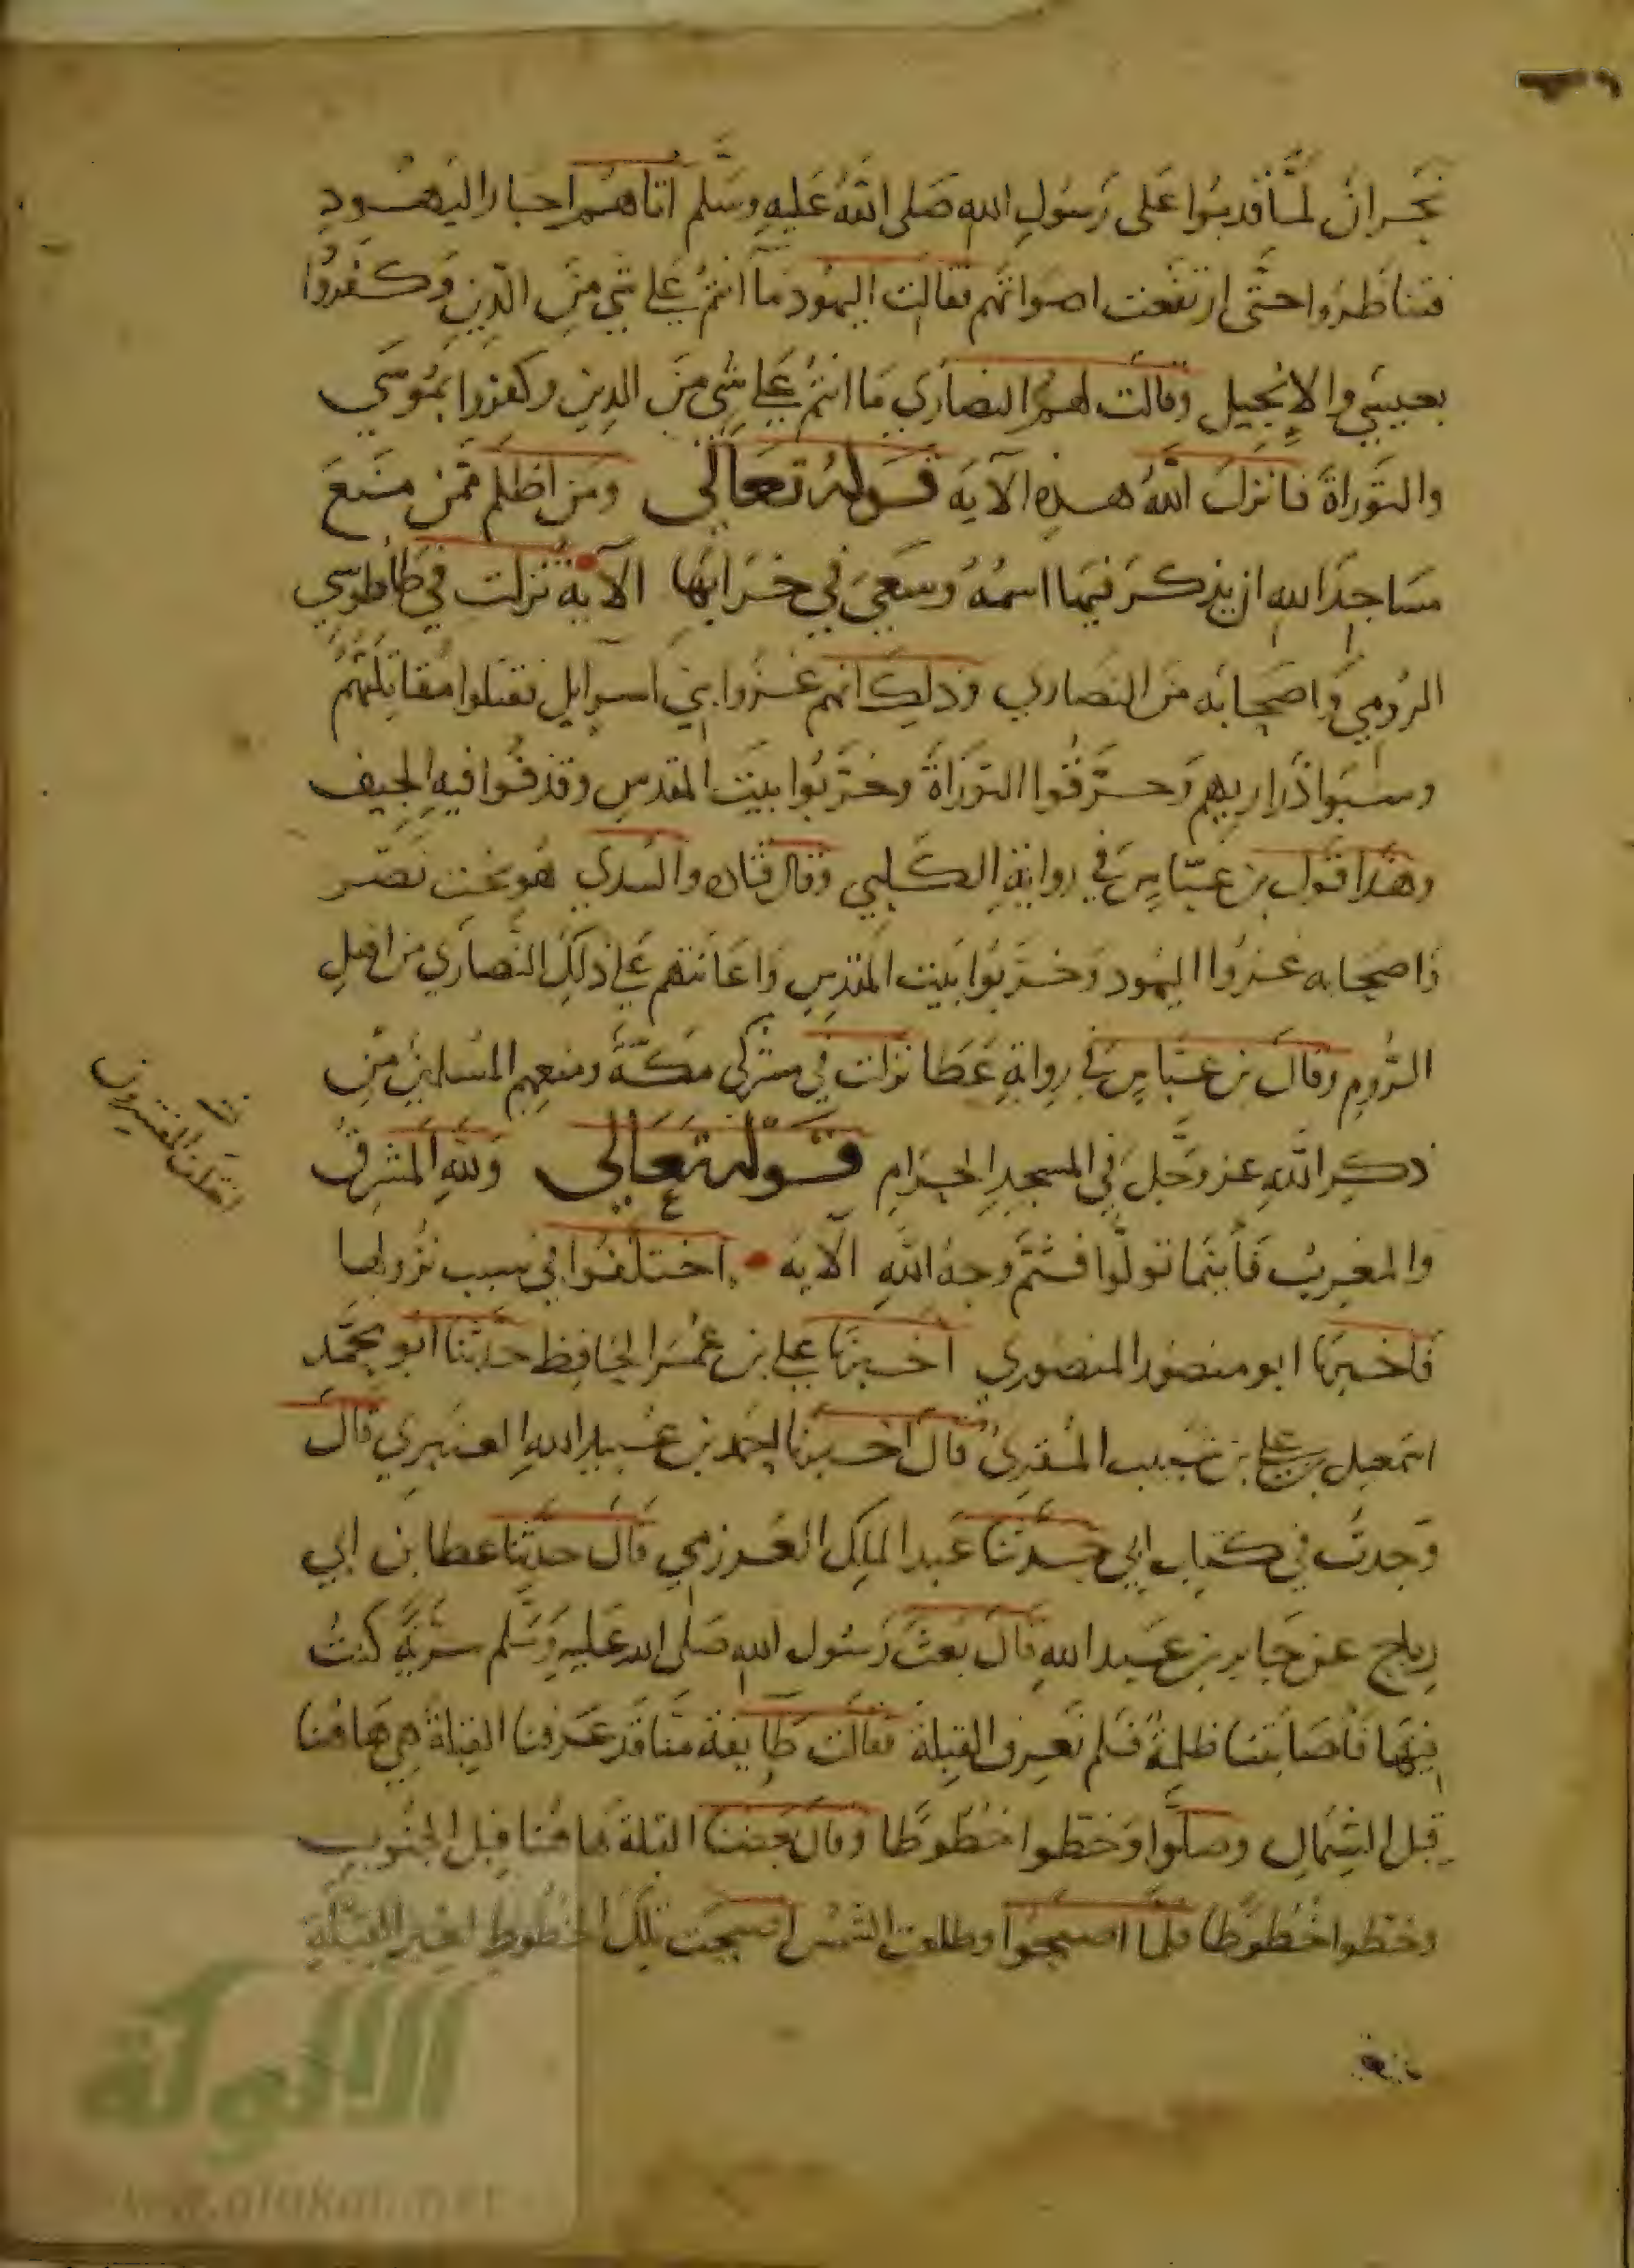 نجران لما قدموا على رسول الله صلى الله عليه وسلم اتاهم احبار اليهود
فتناظروا حتى ارتفعت اصواتهم فقالت اليهود ما انتم على شي من الدين وكفروا
بعيسى والانجيل وقالت لهم النصارى ما انتم على شي من الدين وكفروا بموسى
والتوراة فانزل الله هذه الآية قوله تعالى ومن اظلم ممن منع
مساجد الله ان يذكر فيها اسمه وسعى في خرابها الآية نزلت في ططوس
الرومي واصحابه من النصارى وذلك انهم غزوا بني اسرايل فقتلوا مقاتلتهم
وسبوا ذراريهم وحرقوا التوراة وخربوا بيت المقدس وقذفوا فيه الجيف
وهذا قول بن عباس في رواية الكلبي وقال قتاده والسدي هو بخت نصر
واصحابه غزوا اليهود وخربوا بيت المقدس واعانتهم على ذلك النصارى من اهل
الروم وقال بن عباس في رواية عطا نزلت في مشركى مكة ومنعهم المسلمين من
ذكر الله عز وجل في المسجد الحرام قوله تعالى ولله المشرق
والمغرب فأينما تولوا فثم وجه الله الآية اختلفوا في سبب نزولها
فاخبرنا ابو منصور المنصوري اخبرنا علي بن عمر الحافظ حدثنا ابو محمد
اسمعيل بن علي بن شبيب المقرئ قال اخبرنا احمد بن عبيد الله العنبري قال
وجدت في كتاب ابي حدثنا عبد الملك العرزمي قال حدثنا عطا بن ابي
رباح عن جابر بن عبد الله قال بعث رسول الله صلى الله عليه وسلم سرية كنت
فيها فأصابتنا ظلمة فلم نعرف القبلة فقالت طايفة منا قد عرفنا القبلة هي هاهنا
قبل الشمال وصلوا وخطوا خطوطا وقال بعضنا القبلة هاهنا قبل الجنوب
وخطوا خطوطا فلما اصبحوا وطلعت الشمس اصبحت تلك الخطوط لغير القبلة
اختلف المفسرون
الألوكة
www.alukah.net